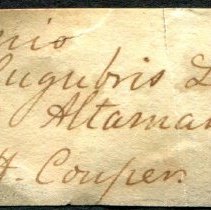 nio
lugubris L
Altama
H. Couper